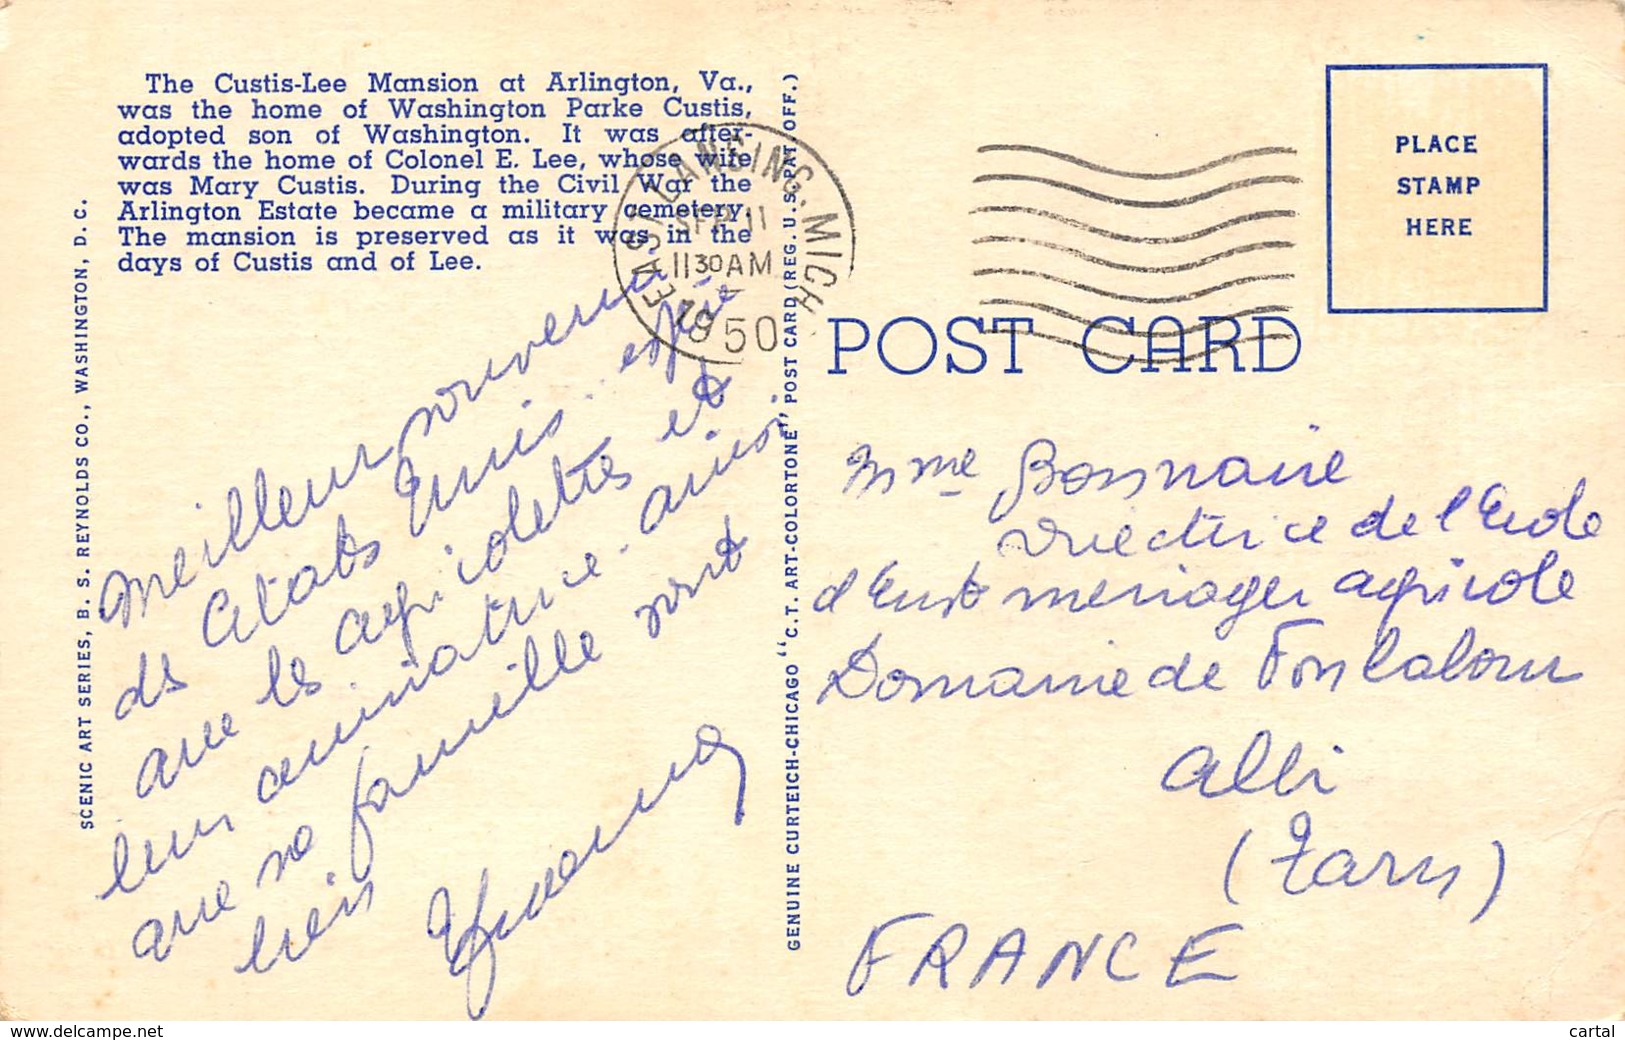 The Custis-Lee Mansion at Arlington, Va.,
was the home of Washington Parke Custis,
adopted son of Washington. It was after-
wards the home of Colonel E. Lee, whose wife
was Mary Custis. During the Civil War the
Arlington Estate became a military cemetery.
The mansion is preserved as it was in the
days of Custis and of Lee.
SCENIC ART SERIES, B. S. REYNOLDS CO., WASHINGTON, D. C.
Meilleur souvenir
des Etats Unis. espère
que les agricolettes et
leur animatrice ainsi
que sa famille vont
bien
GENUINE CURTEICH-CHICAGO "C.T. ART-COLORTONE" POST CARD (REG. U.S. PAT. OFF.)
EAST LANSING. MICH
SEP 11
11 30 AM
1950
PLACE
STAMP
HERE
POST CARD
Mme Bonnaire
Directrice de l'Ecole
d'Enst menager agricole
Domaine de Fonlabour
Albi
(Tarn)
FRANCE
www.delcampe.net
cartal